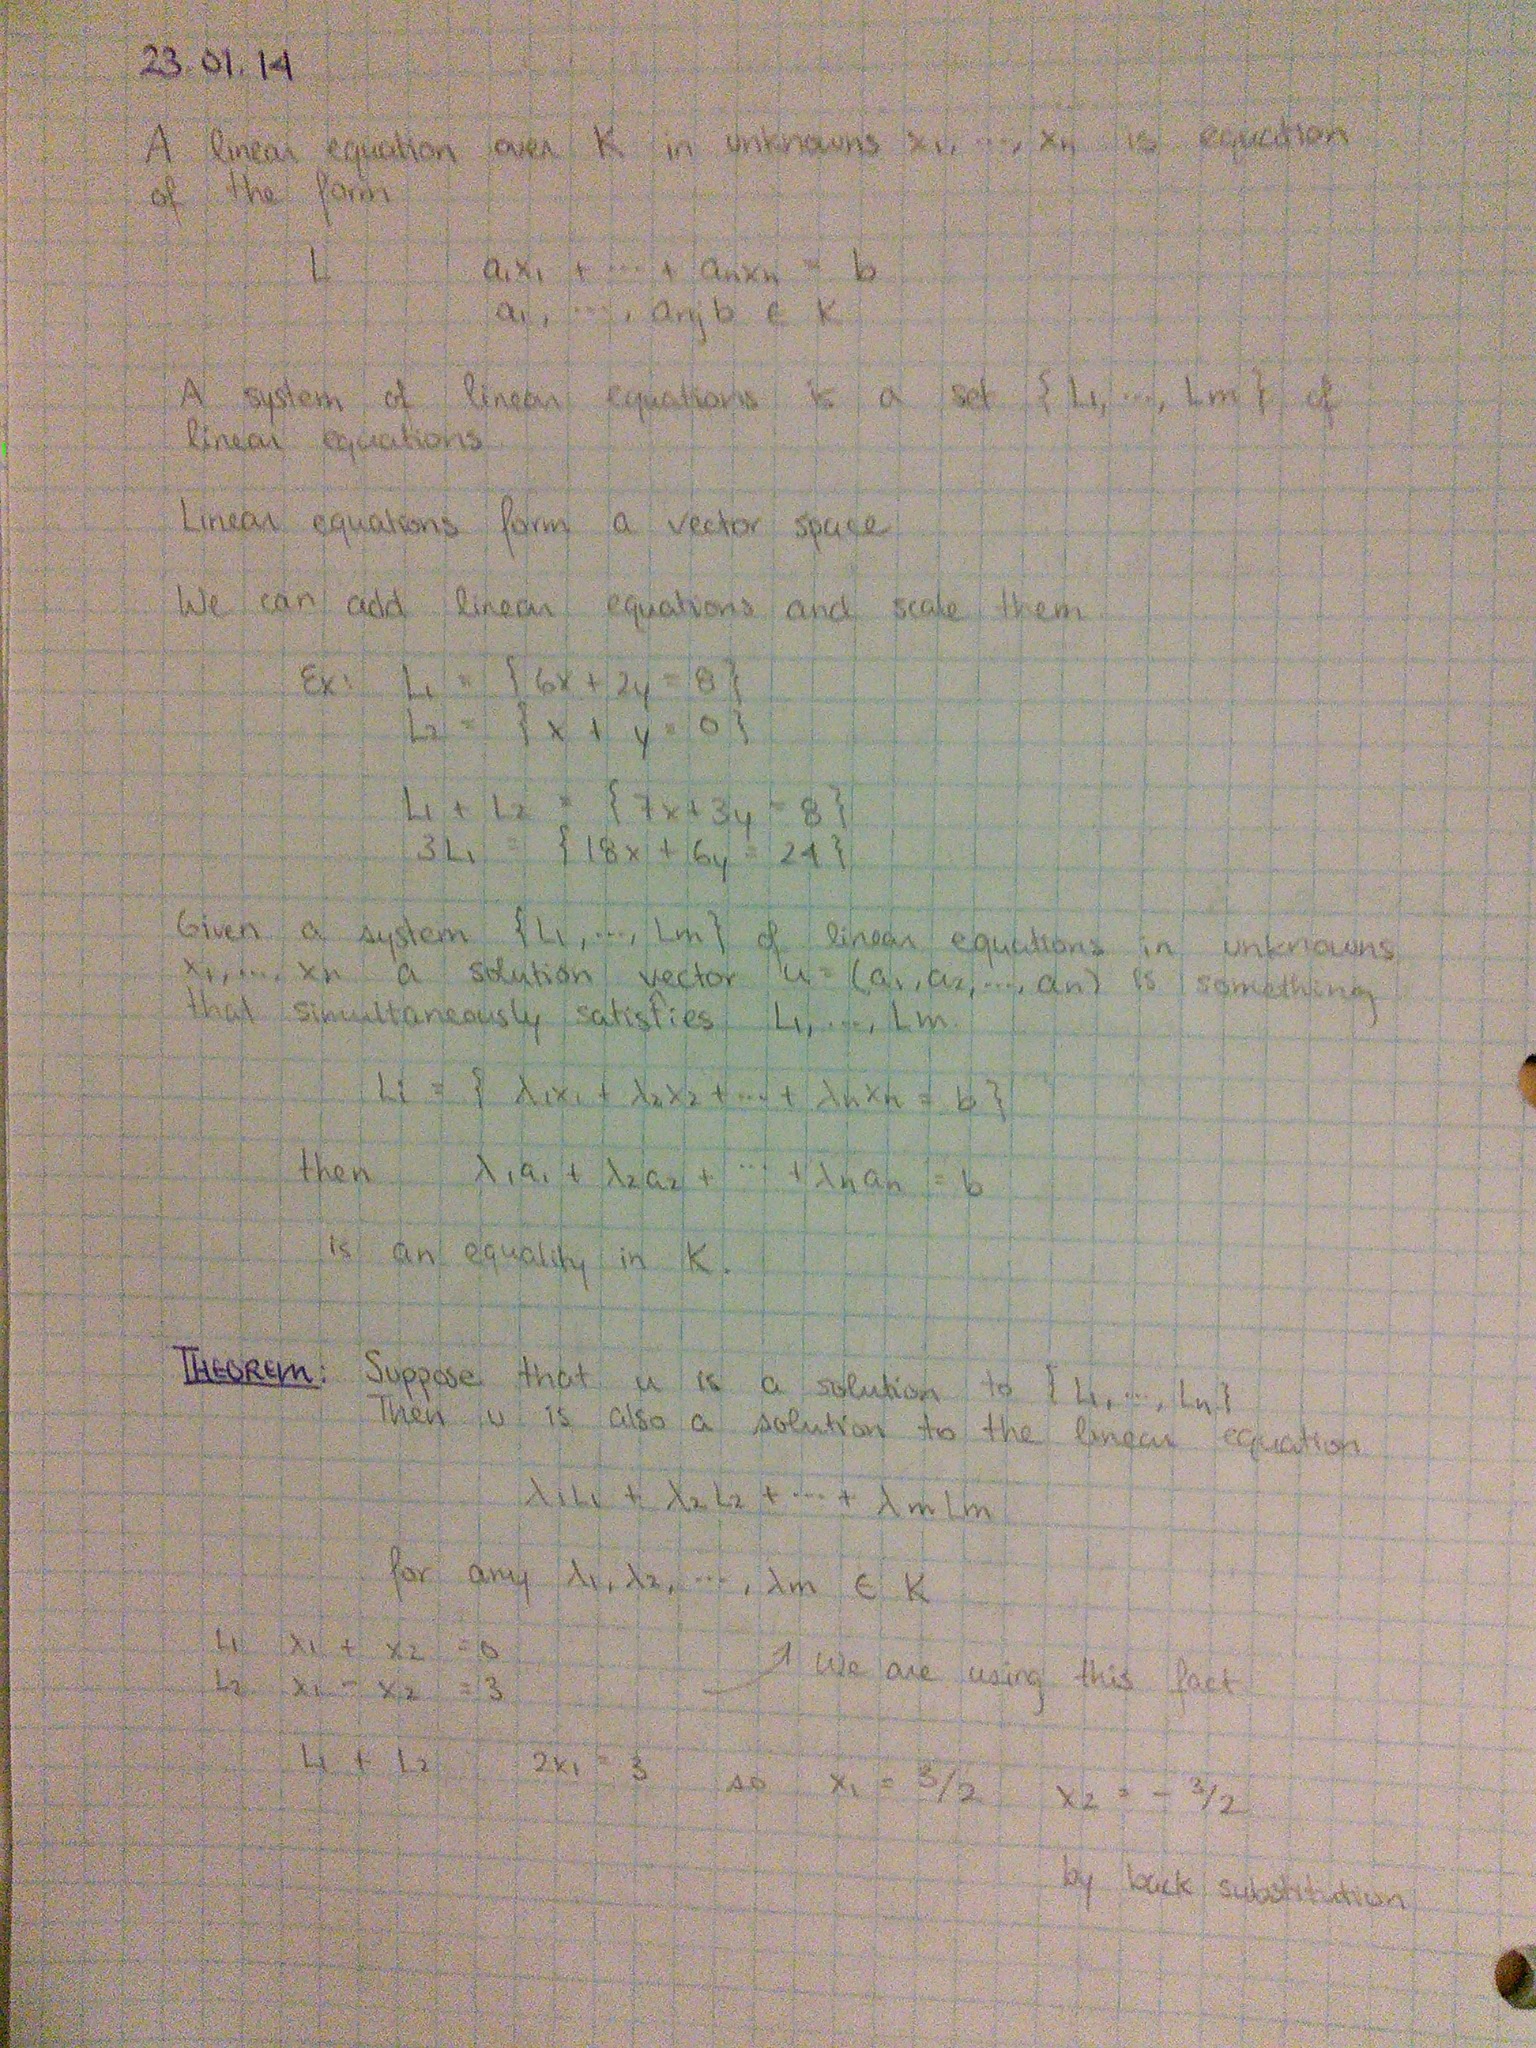 23.01.14
A linear equation over K in unknowns x₁, ..., xₙ is equation
of the form
L a₁x₁ + ... + aₙxₙ = b
a₁, ..., aₙ, b ∈ K
A system of linear equations is a set {L₁, ..., Lm} of
linear equations
Linear equations form a vector space
We can add linear equations and scale them
Ex: L₁ = {6x + 2y = 8}
L₂ = {x + y = 0}
L₁ + L₂ = {7x + 3y = 8}
3L₁ = {18x + 6y = 24}
Given a system {L₁, ..., Lm} of linear equations in unknowns
x₁, ..., xₙ a solution vector u = (a₁, a₂, ..., aₙ) is something
that simultaneously satisfies L₁, ..., Lm.
Li = { λ₁x₁ + λ₂x₂ + ... + λₙxₙ = b}
then λ₁a₁ + λ₂a₂ + ... + λₙaₙ = b
is an equality in K.
THEOREM: Suppose that u is a solution to {L₁, ..., Ln}
Then u is also a solution to the linear equation
λ₁L₁ + λ₂L₂ + ... + λmLm
for any λ₁, λ₂, ..., λm ∈ K
L₁ x₁ + x₂ = 0
L₂ x₁ - x₂ = 3
We are using this fact
L₁ + L₂ 2x₁ = 3 so x₁ = 3/2 x₂ = - 3/2
by back substitution